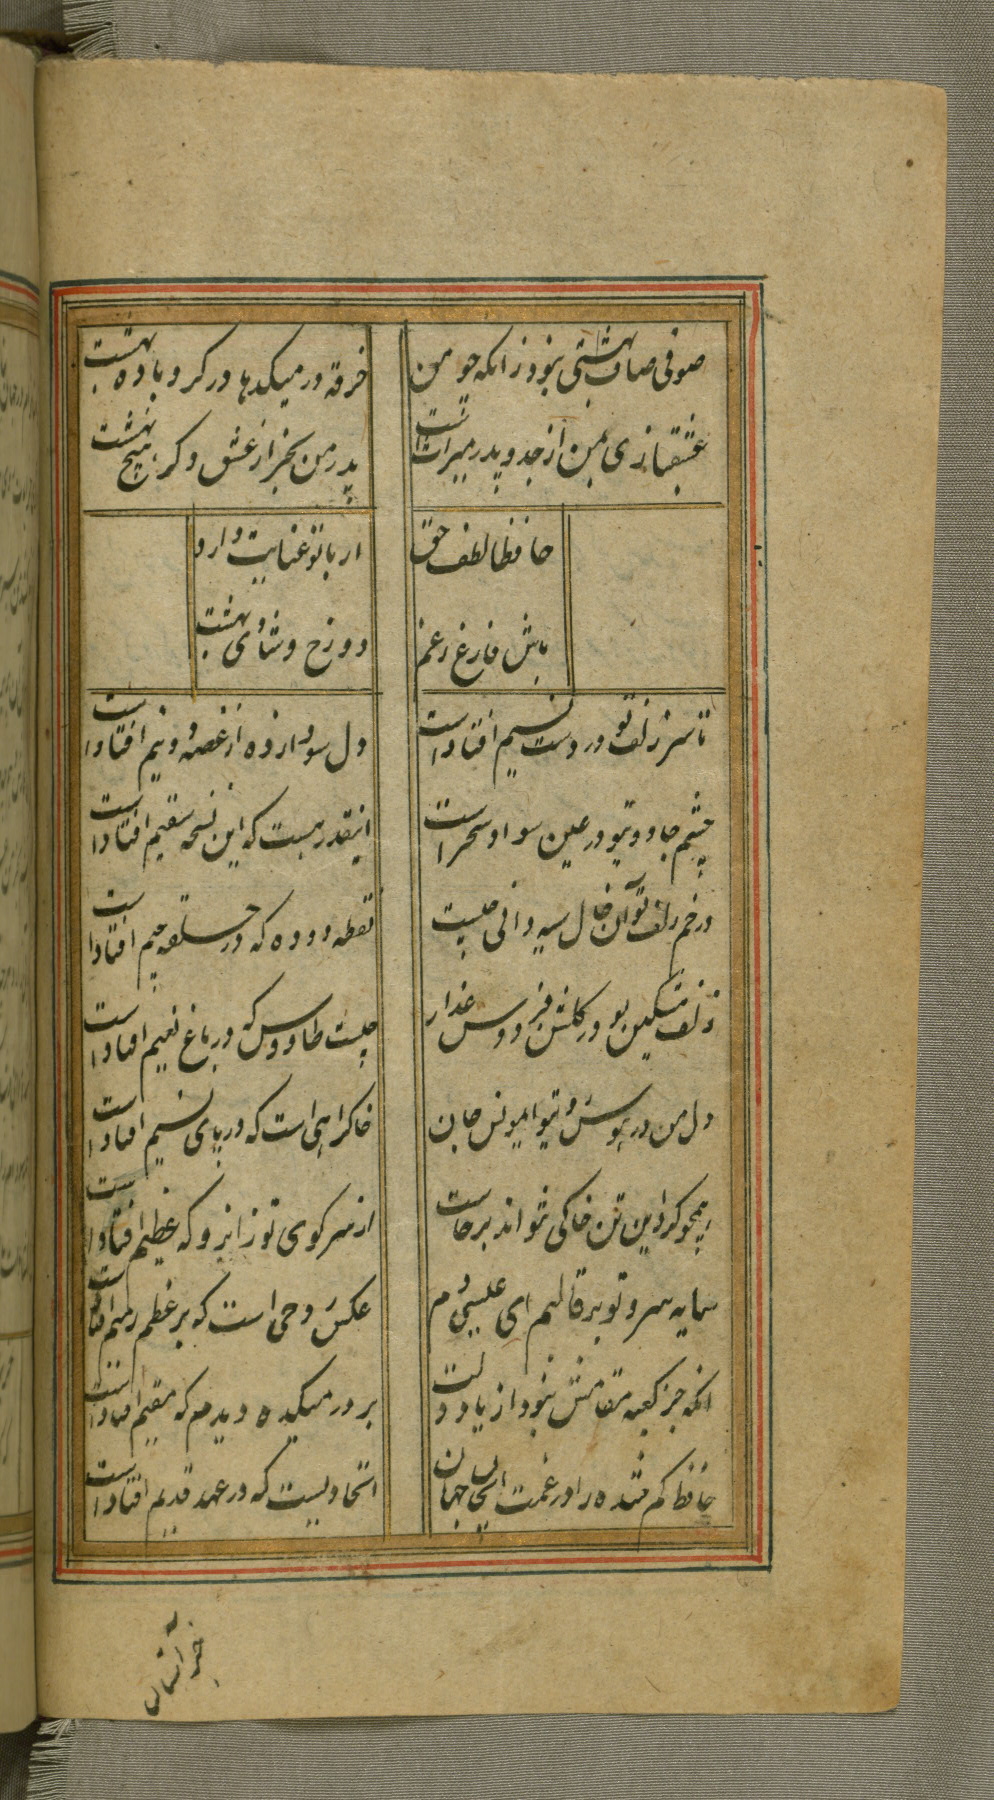 صوفی صاف بهشتی نبود زانکه چو من
خرقه در میکدها در کرو باده بهشت
عشقبازی من از جد و پدر میراث است
پدر من بخز از عشق دکر هیچ بهشت
حافظا لطف حق
ار با تو عنایت دارد
باش فارغ زغم
دوزخ و شادی بهشت
تا سر زلف تو در دست نسیم افتاداست
دل سودازده از غصه دو نیم افتاداست
چشم جادو تو در عین سواد سحراست
اینقدر هست که این نسخه سقیم افتاداست
در خم زلف تو آن خال سیه دانی چیست
نقطه دوده که در حلقه جیم افتاداست
زلف مشکین تو در کلشن فردوس عذار
چیست طاووس که در باغ نعیم افتاداست
دل من در هوس روی تو ای مونس جان
خاکراهی است که در پای نسیم افتاداست
همچو کرد این تن خاکی نتواند برخاست
از سر کوی تو زانرو که عظیم افتاداست
سایه سرو تو بر قالبم ای عیسی دم
عکس روحی است که بر عظم رمیم افتاداست
انکه جز کعبه مقامش نبود از یاد لبت
بر در میکده دیدم که مقیم افتاداست
حافظ کم شده را در غمت ای جان جهان
اتحادیست که در عهد قدیم افتاداست